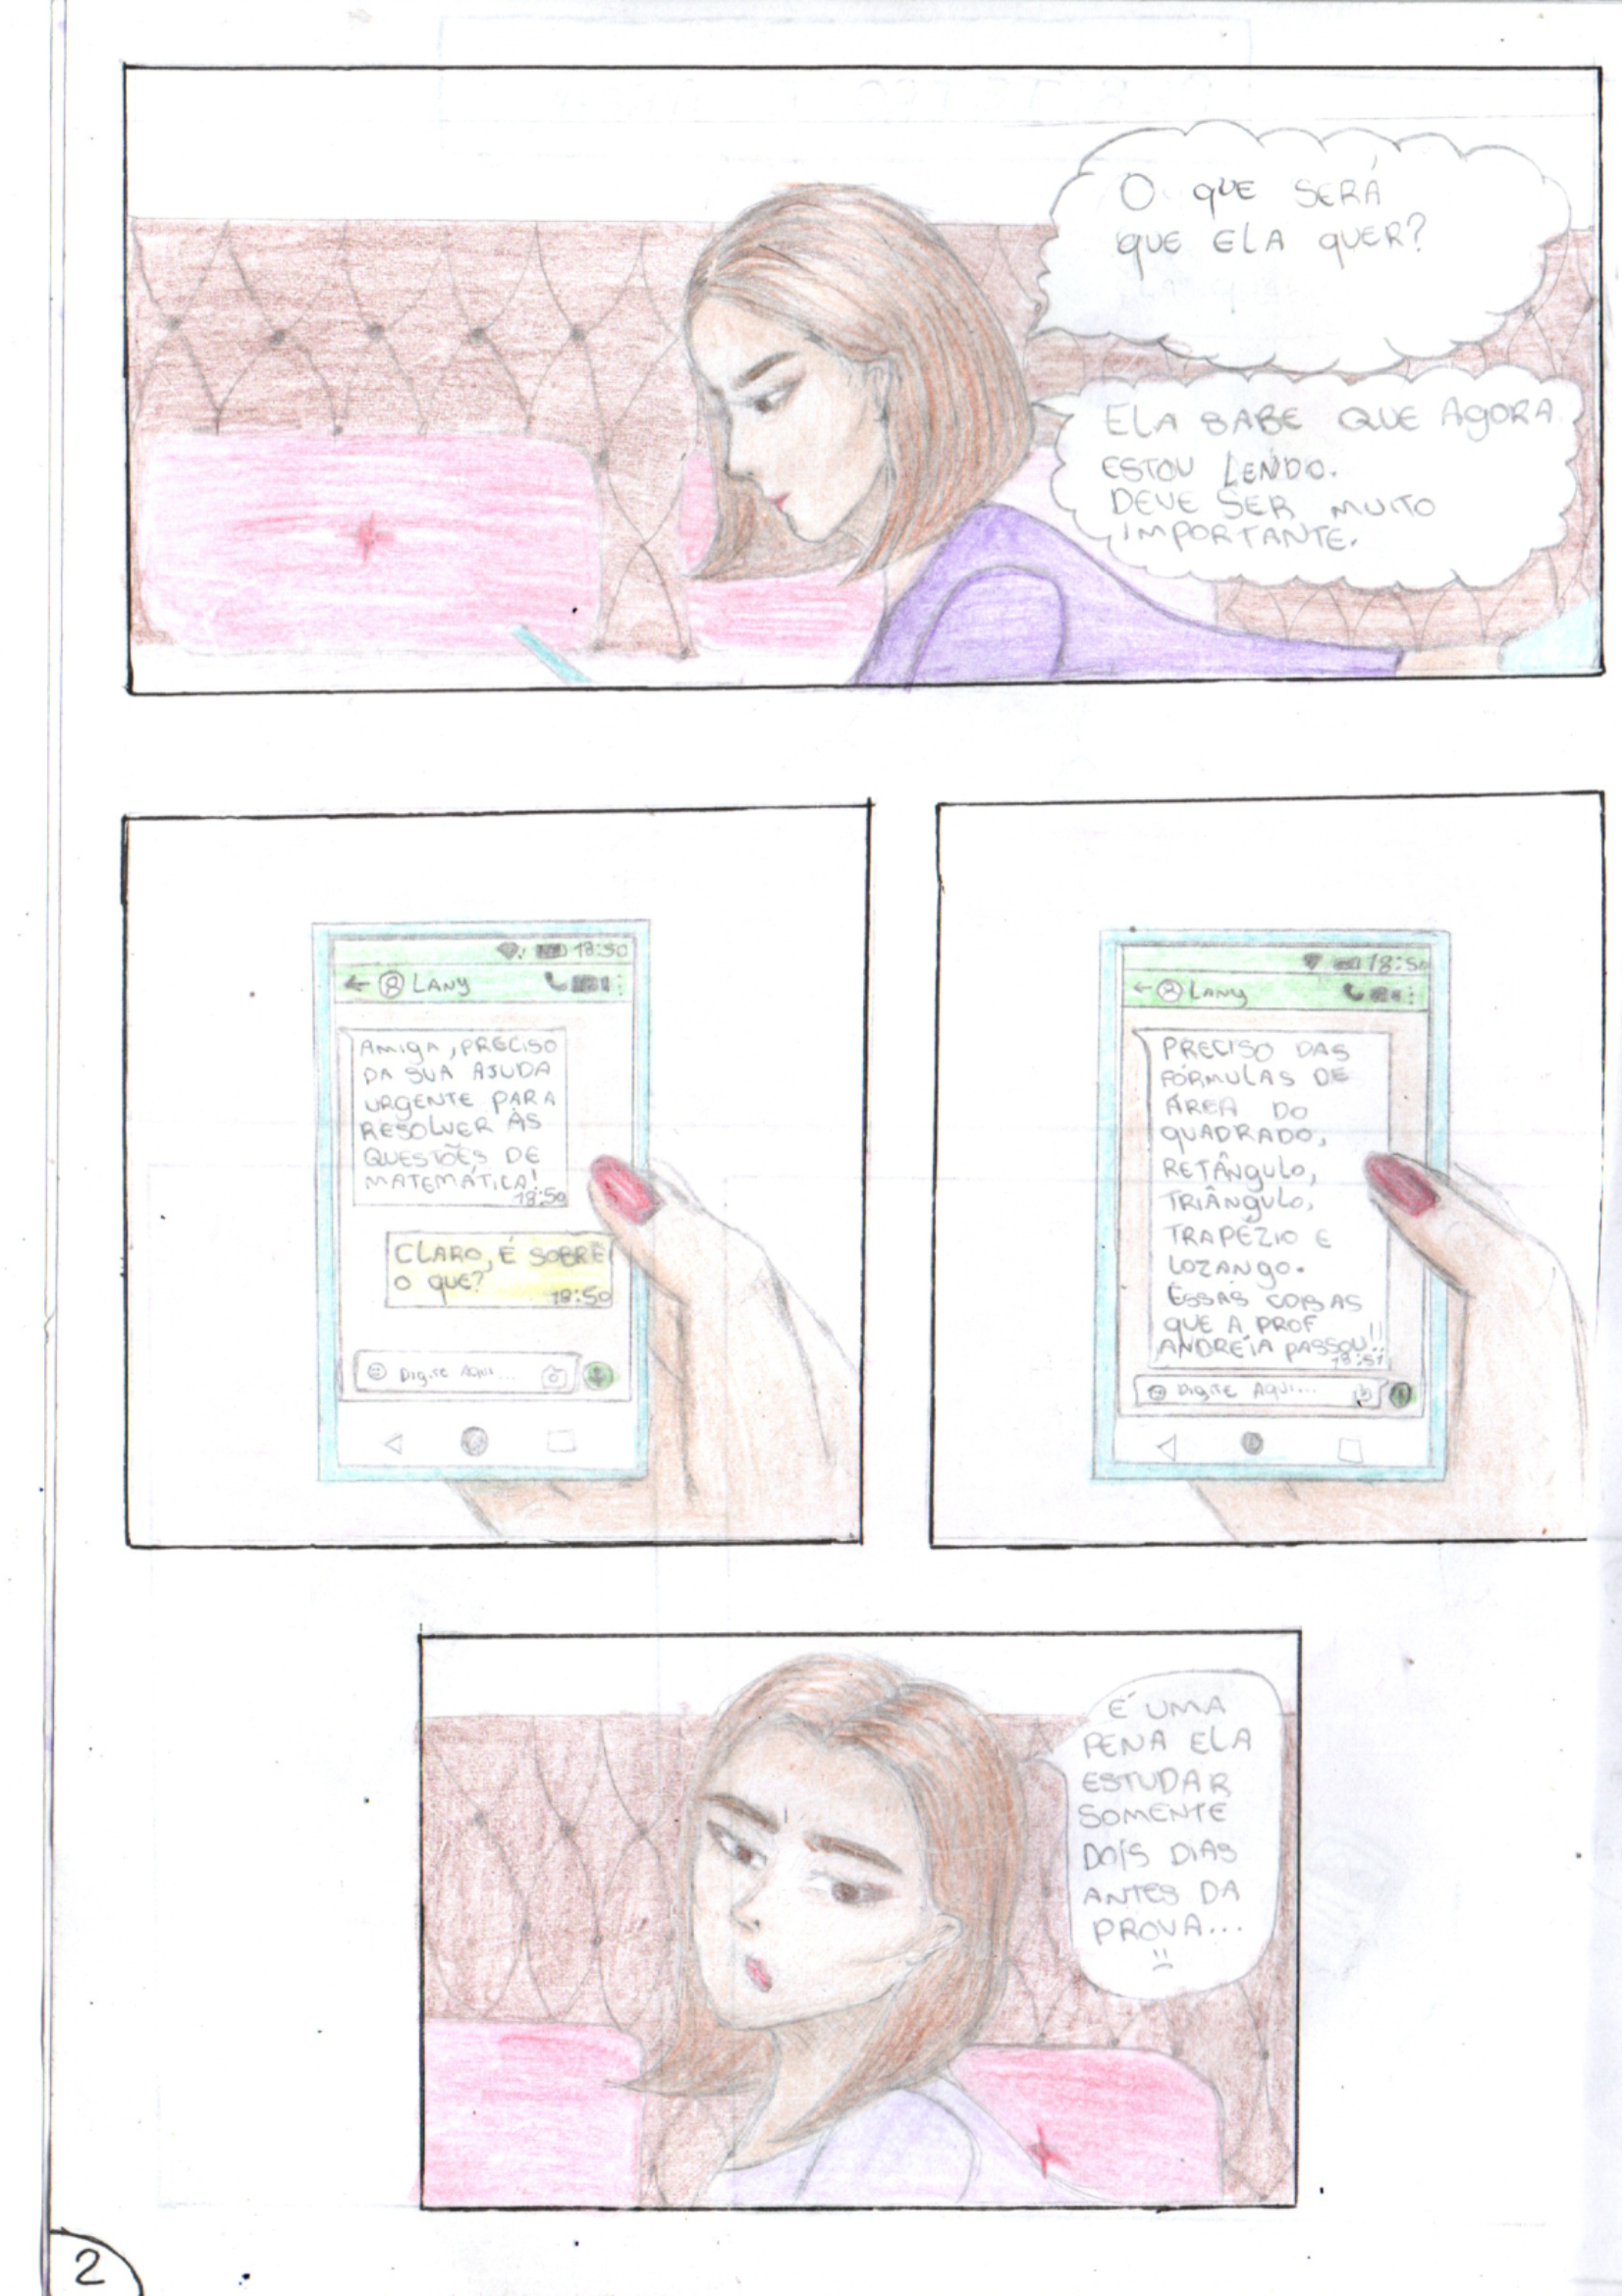 O QUE SERÁ
QUE ELA QUER?
ELA SABE QUE AGORA
ESTOU LENDO.
DEVE SER MUITO
IMPORTANTE.
18:50
LANY
AMIGA, PRECISO
DA SUA AJUDA
URGENTE PARA
RESOLVER ÀS
QUESTÕES DE
MATEMÁTICA!
18:50
CLARO, É SOBRE
O QUE?
18:50
DIGITE AQUI...
18:50
LANY
PRECISO DAS
FÓRMULAS DE
ÁREA DO
QUADRADO,
RETÂNGULO,
TRIÂNGULO,
TRAPÉZIO E
LOZANGO.
ESSAS COISAS
QUE A PROF
ANDRÉIA PASSOU!!
18:51
DIGITE AQUI...
É UMA
PENA ELA
ESTUDAR
SOMENTE
DOIS DIAS
ANTES DA
PROVA...
2